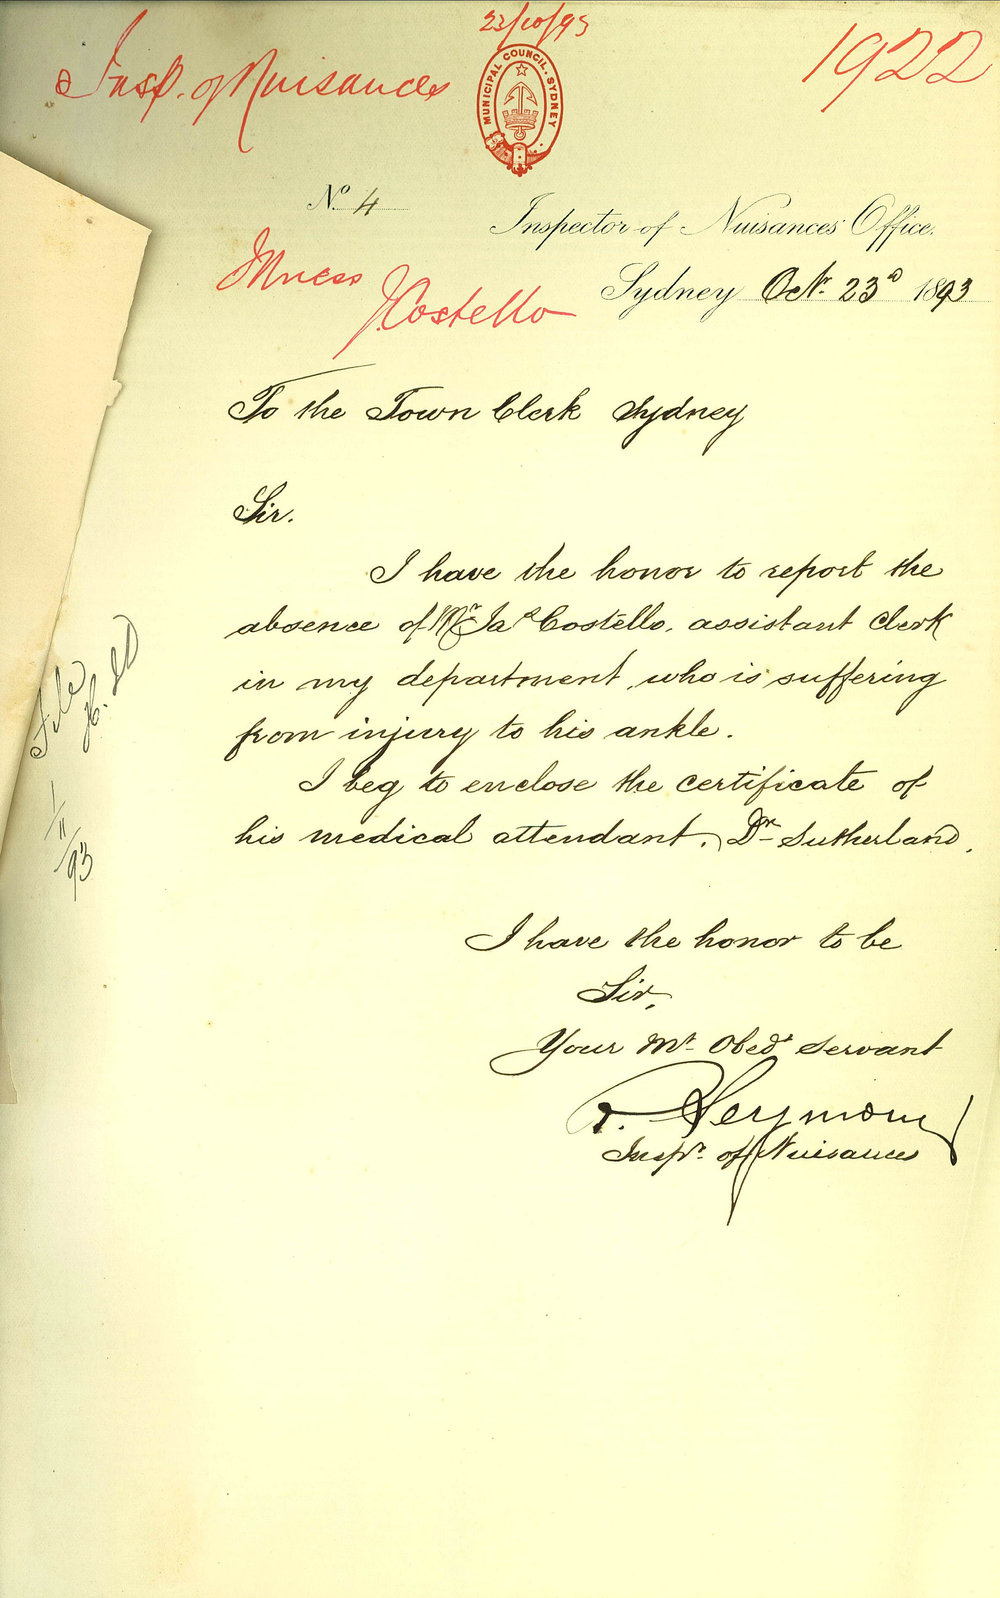 23/10/93
Insp. of Nuisances
1922
MUNICIPAL COUNCIL. SYDNEY
No. 4
Inspector of Nuisances' Office.
Illness
J. Costello
Sydney Octr. 23d 1893
To the Town Clerk Sydney
Sir.
I have the honor to report the
absence of Mr Jas Costello, assistant clerk
in my department, who is suffering
from injury to his ankle.
I beg to enclose the certificate of
his medical attendant, Dr Sutherland.
I have the honor to be
Sir,
Your Mt Obedt servant
R. Seymour
Inspr. of Nuisances
File
1/11/93